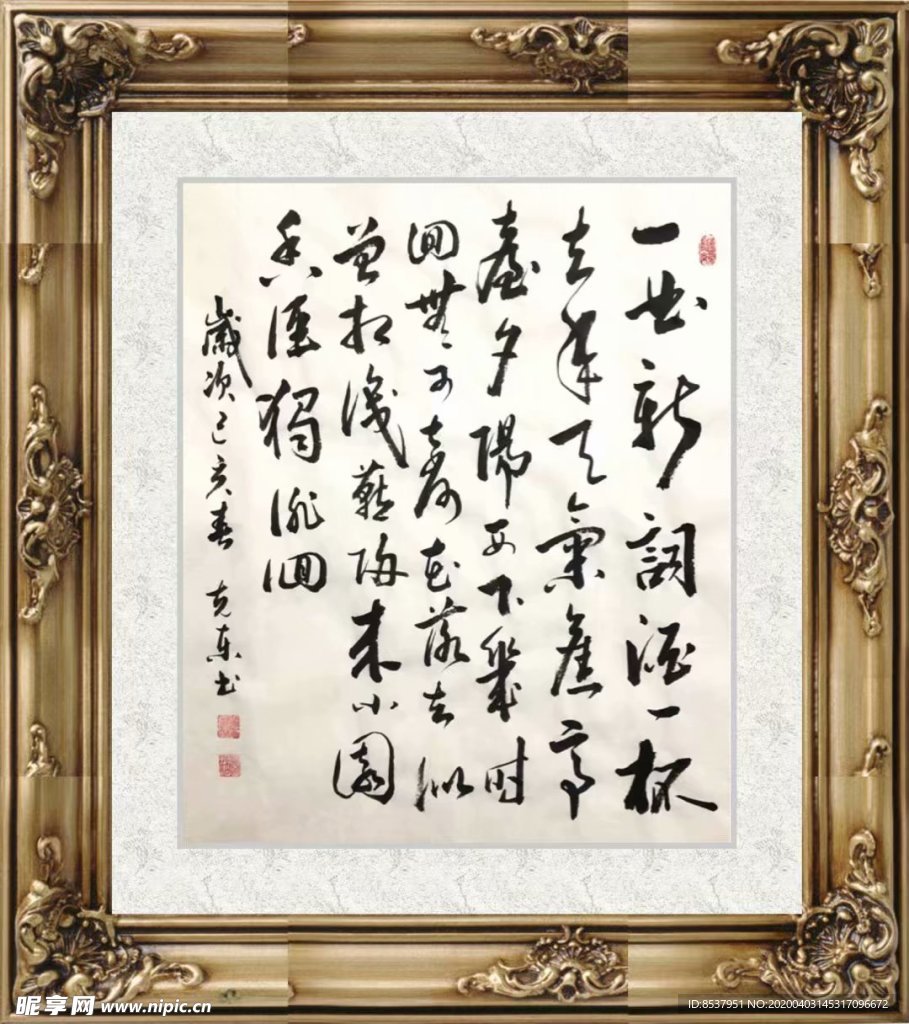 一曲新詞酒一杯
去年天氣舊亭
臺夕陽西下幾時
回無可奈何花落去似
曾相識燕歸來小園
香徑獨徘徊
歲次己亥春 克東書
昵享网 www.nipic.cn
ID:8537951 NO:20200403145317096672